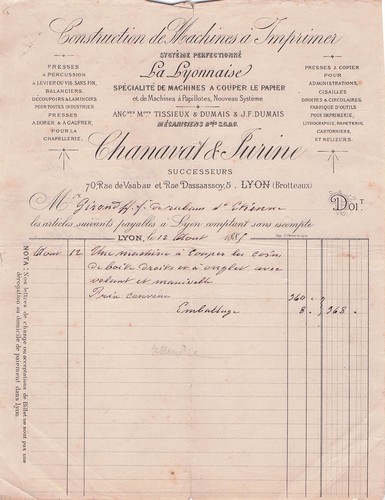 Construction de Machines à Imprimer
SYSTÈME PERFECTIONNÉ
La Lyonnaise
SPÉCIALITÉ DE MACHINES A COUPER LE PAPIER
et de Machines à Papillotes, Nouveau Système
ANC^NES M^ONS TISSIEUX & DUMAIS & J.F. DUMAIS
MÉCANICIENS B^TÉS S.G.D.G.
Chanavat & Jurine
SUCCESSEURS
70, Rue de Vauban et Rue Dassassoy, 5. LYON (Brotteaux)
PRESSES
A PERCUSSION
A LEVIER OU VIS SANS FIN,
BALANCIERS,
DÉCOUPOIRS & LAMINOIRS
POUR TOUTES INDUSTRIES
PRESSES
A DORER & A GAUFRER,
POUR LA
CHAPELLERIE.
PRESSES A COPIER
POUR
ADMINISTRATIONS,
CISAILLES
DROITES & CIRCULAIRES.
FABRIQUE D'OUTILS
POUR IMPRIMERIE,
LITHOGRAPHIE, PAPETERIE,
CARTONNIERS,
ET RELIEURS.
M Girond ff. f. de rubans St Etienne DOIT
les articles suivants payables à Lyon comptant sans escompte
LYON, le 12 Aout 188
Aout 12 Une machine à couper les coins
de boite droits et à onglet avec
volant et manivelle
Prix convenu 360 »
Emballage 8 » 368 »
NOTA : Nos lettres de change ou acceptations de Billet ne sont pas une
dérogation au domicile de paiement dans Lyon.